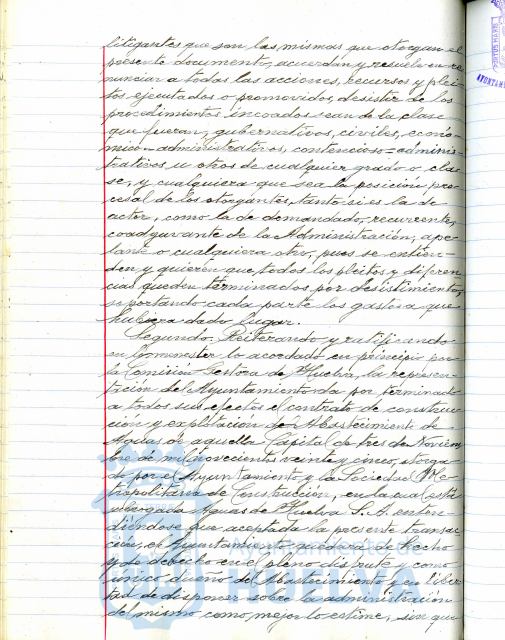 litigantes que son las mismas que otorgan el
presente documento, acuerdan y resuelven re
nunciar a todas las acciones, recursos y plei
tos ejecutados o promovidos, desistir de los
procedimientos incoados sean de la clase
que fueran, gubernativos, civiles, econó
mico-administrativos, contencioso-adminis
trativos u otros de cualquier grado o cla
se, y cualquiera que sea la posición pro
cesal de los otorgantes, tanto si es la de
actor, como la de demandado, recurrente,
coadyuvante de la Administración, ape
lante o cualquiera otro, pues se entien
den y quieren que todos los pleitos y diferen
cias queden terminados por desistimiento,
soportando cada parte los gastos a que
hubiera dado lugar.
Segundo. Reiterando y ratificando
en lo menester lo acordado en principio por
la Comisión Gestora de Huelva, la represen
tación del Ayuntamiento da por terminado
a todos sus efectos el contrato de construc
ción y explotación del Abastecimiento de
Aguas de aquella Capital de tres de Noviem
bre de mil novecientos veinte y cinco, otorga
do por el Ayuntamiento y la Sociedad Me
tropolitana de Construcción, en la cual está
subrogada Aguas de Huelva S.A. enten
diéndose que aceptada la presente transac
ción, el Ayuntamiento quedará de hecho
y de derecho en el pleno disfrute y como
único dueño del Abastecimiento y en liber
tad de disponer sobre la administración
del mismo como mejor lo estime, sin que
Ayuntamiento de
HUELVA